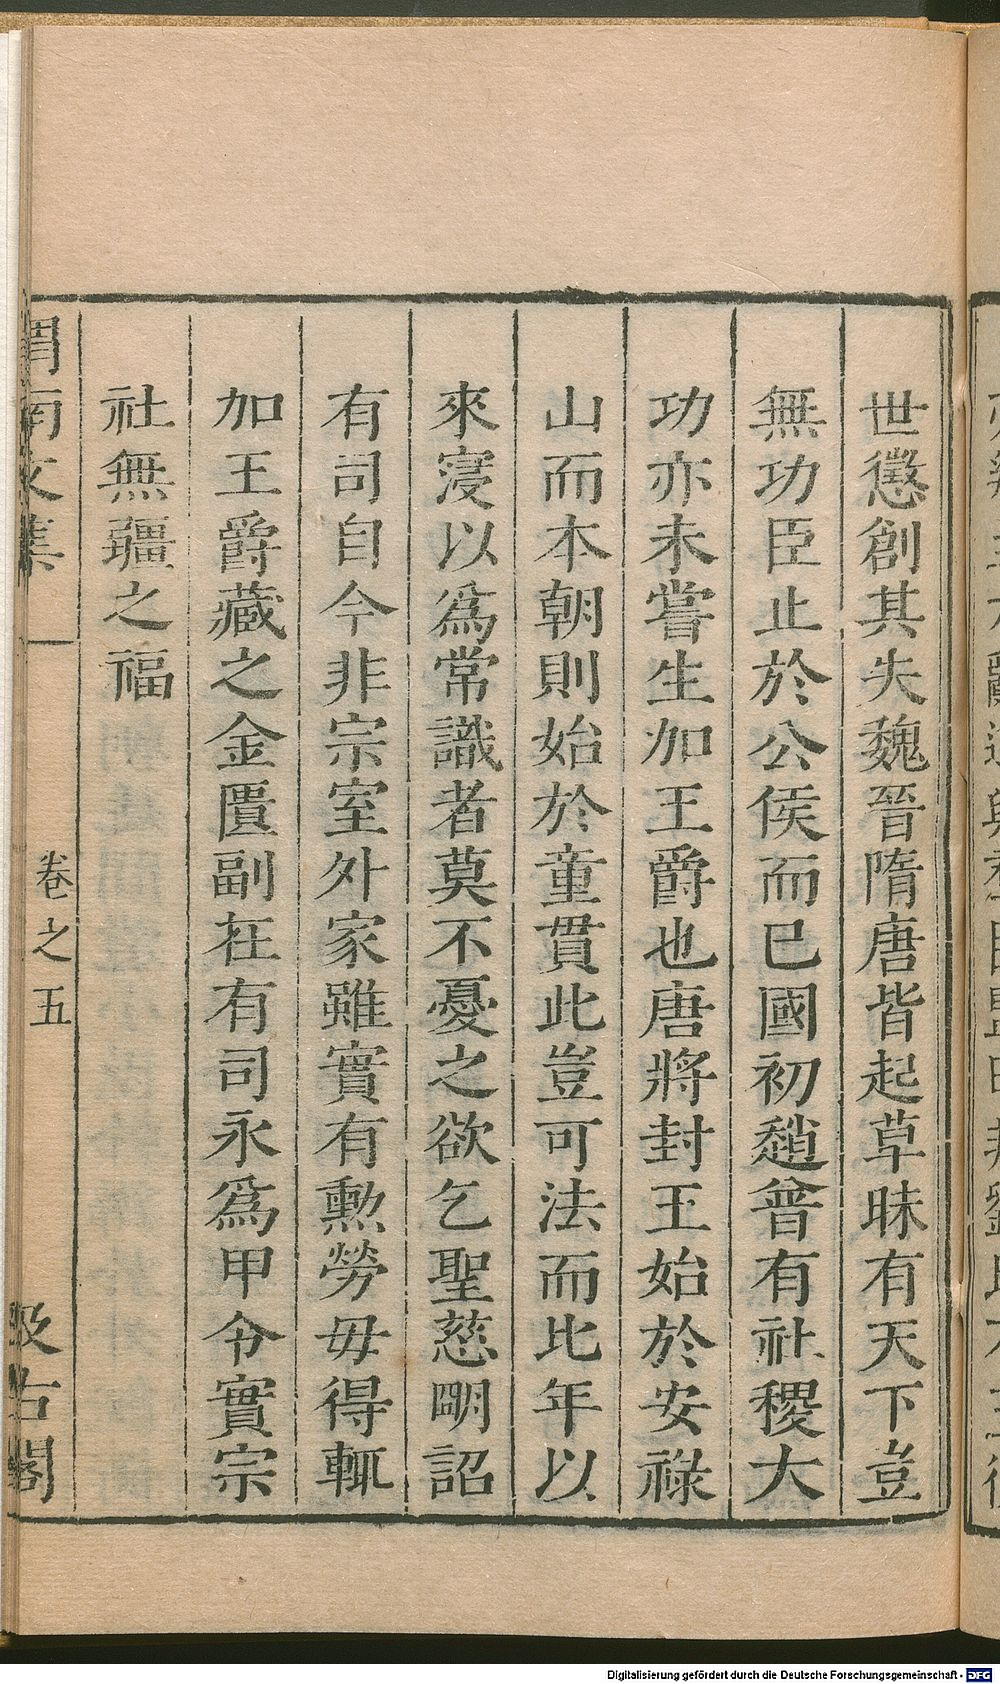 世懲創其失魏晉隋唐皆起草昧有天下豈
無功臣止於公侯而已國初趙普有社稷大
功亦未嘗生加王爵也唐將封王始於安祿
山而本朝則始於童貫此豈可法而比年以
來寖以爲常識者莫不憂之欲乞聖慈明詔
有司自今非宗室外家雖實有勲勞毋得輒
加王爵藏之金匱副在有司永爲甲令實宗
社無疆之福
渭南文集
卷之五
汲古閣
Digitalisierung gefördert durch die Deutsche Forschungsgemeinschaft - DFG